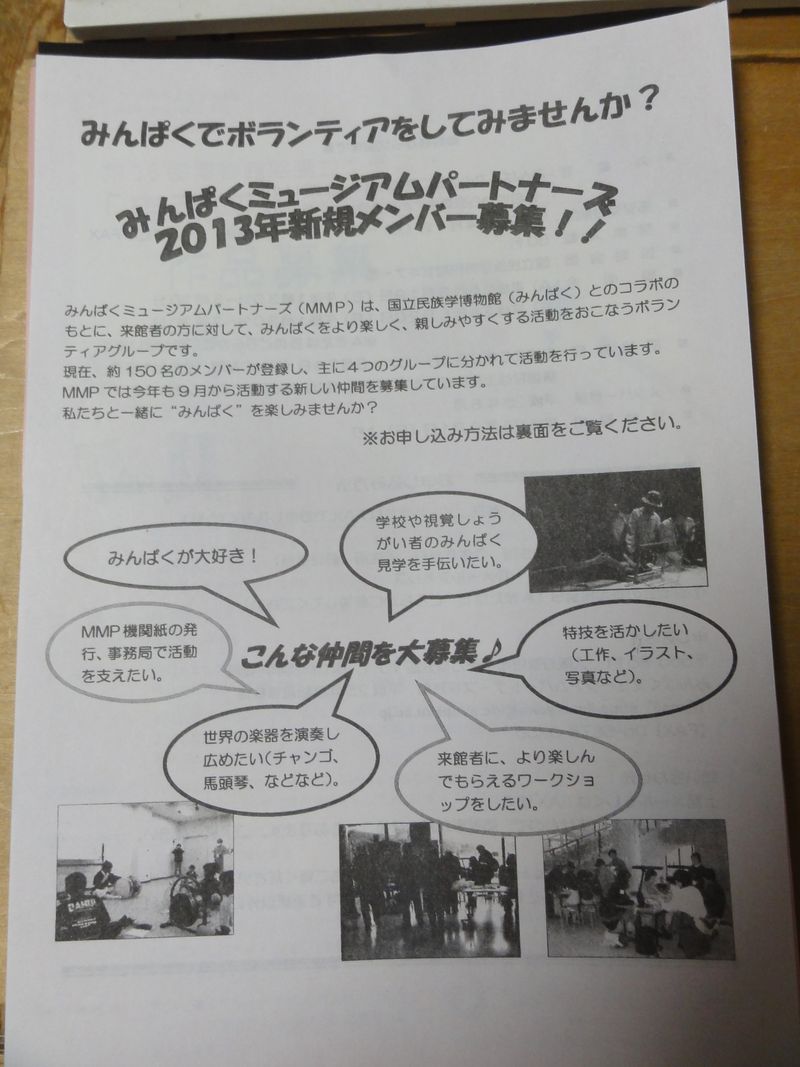 みんぱくでボランティアをしてみませんか？
みんぱくミュージアムパートナーズ
2013年新規メンバー募集！！
みんぱくミュージアムパートナーズ（MMP）は、国立民族学博物館（みんぱく）とのコラボの
もとに、来館者の方に対して、みんぱくをより楽しく、親しみやすくする活動をおこなうボラン
ティアグループです。
現在、約150名のメンバーが登録し、主に4つのグループに分かれて活動を行っています。
MMPでは今年も9月から活動する新しい仲間を募集しています。
私たちと一緒に“みんぱく”を楽しみませんか？
※お申し込み方法は裏面をご覧ください。
みんぱくが大好き！
学校や視覚しょう
がい者のみんぱく
見学を手伝いたい。
MMP機関紙の発
行、事務局で活動
を支えたい。
こんな仲間を大募集♪
特技を活かしたい
（工作、イラスト、
写真など）。
世界の楽器を演奏し
広めたい（チャンゴ、
馬頭琴、などなど）。
来館者に、より楽しん
でもらえるワークショ
ップをしたい。